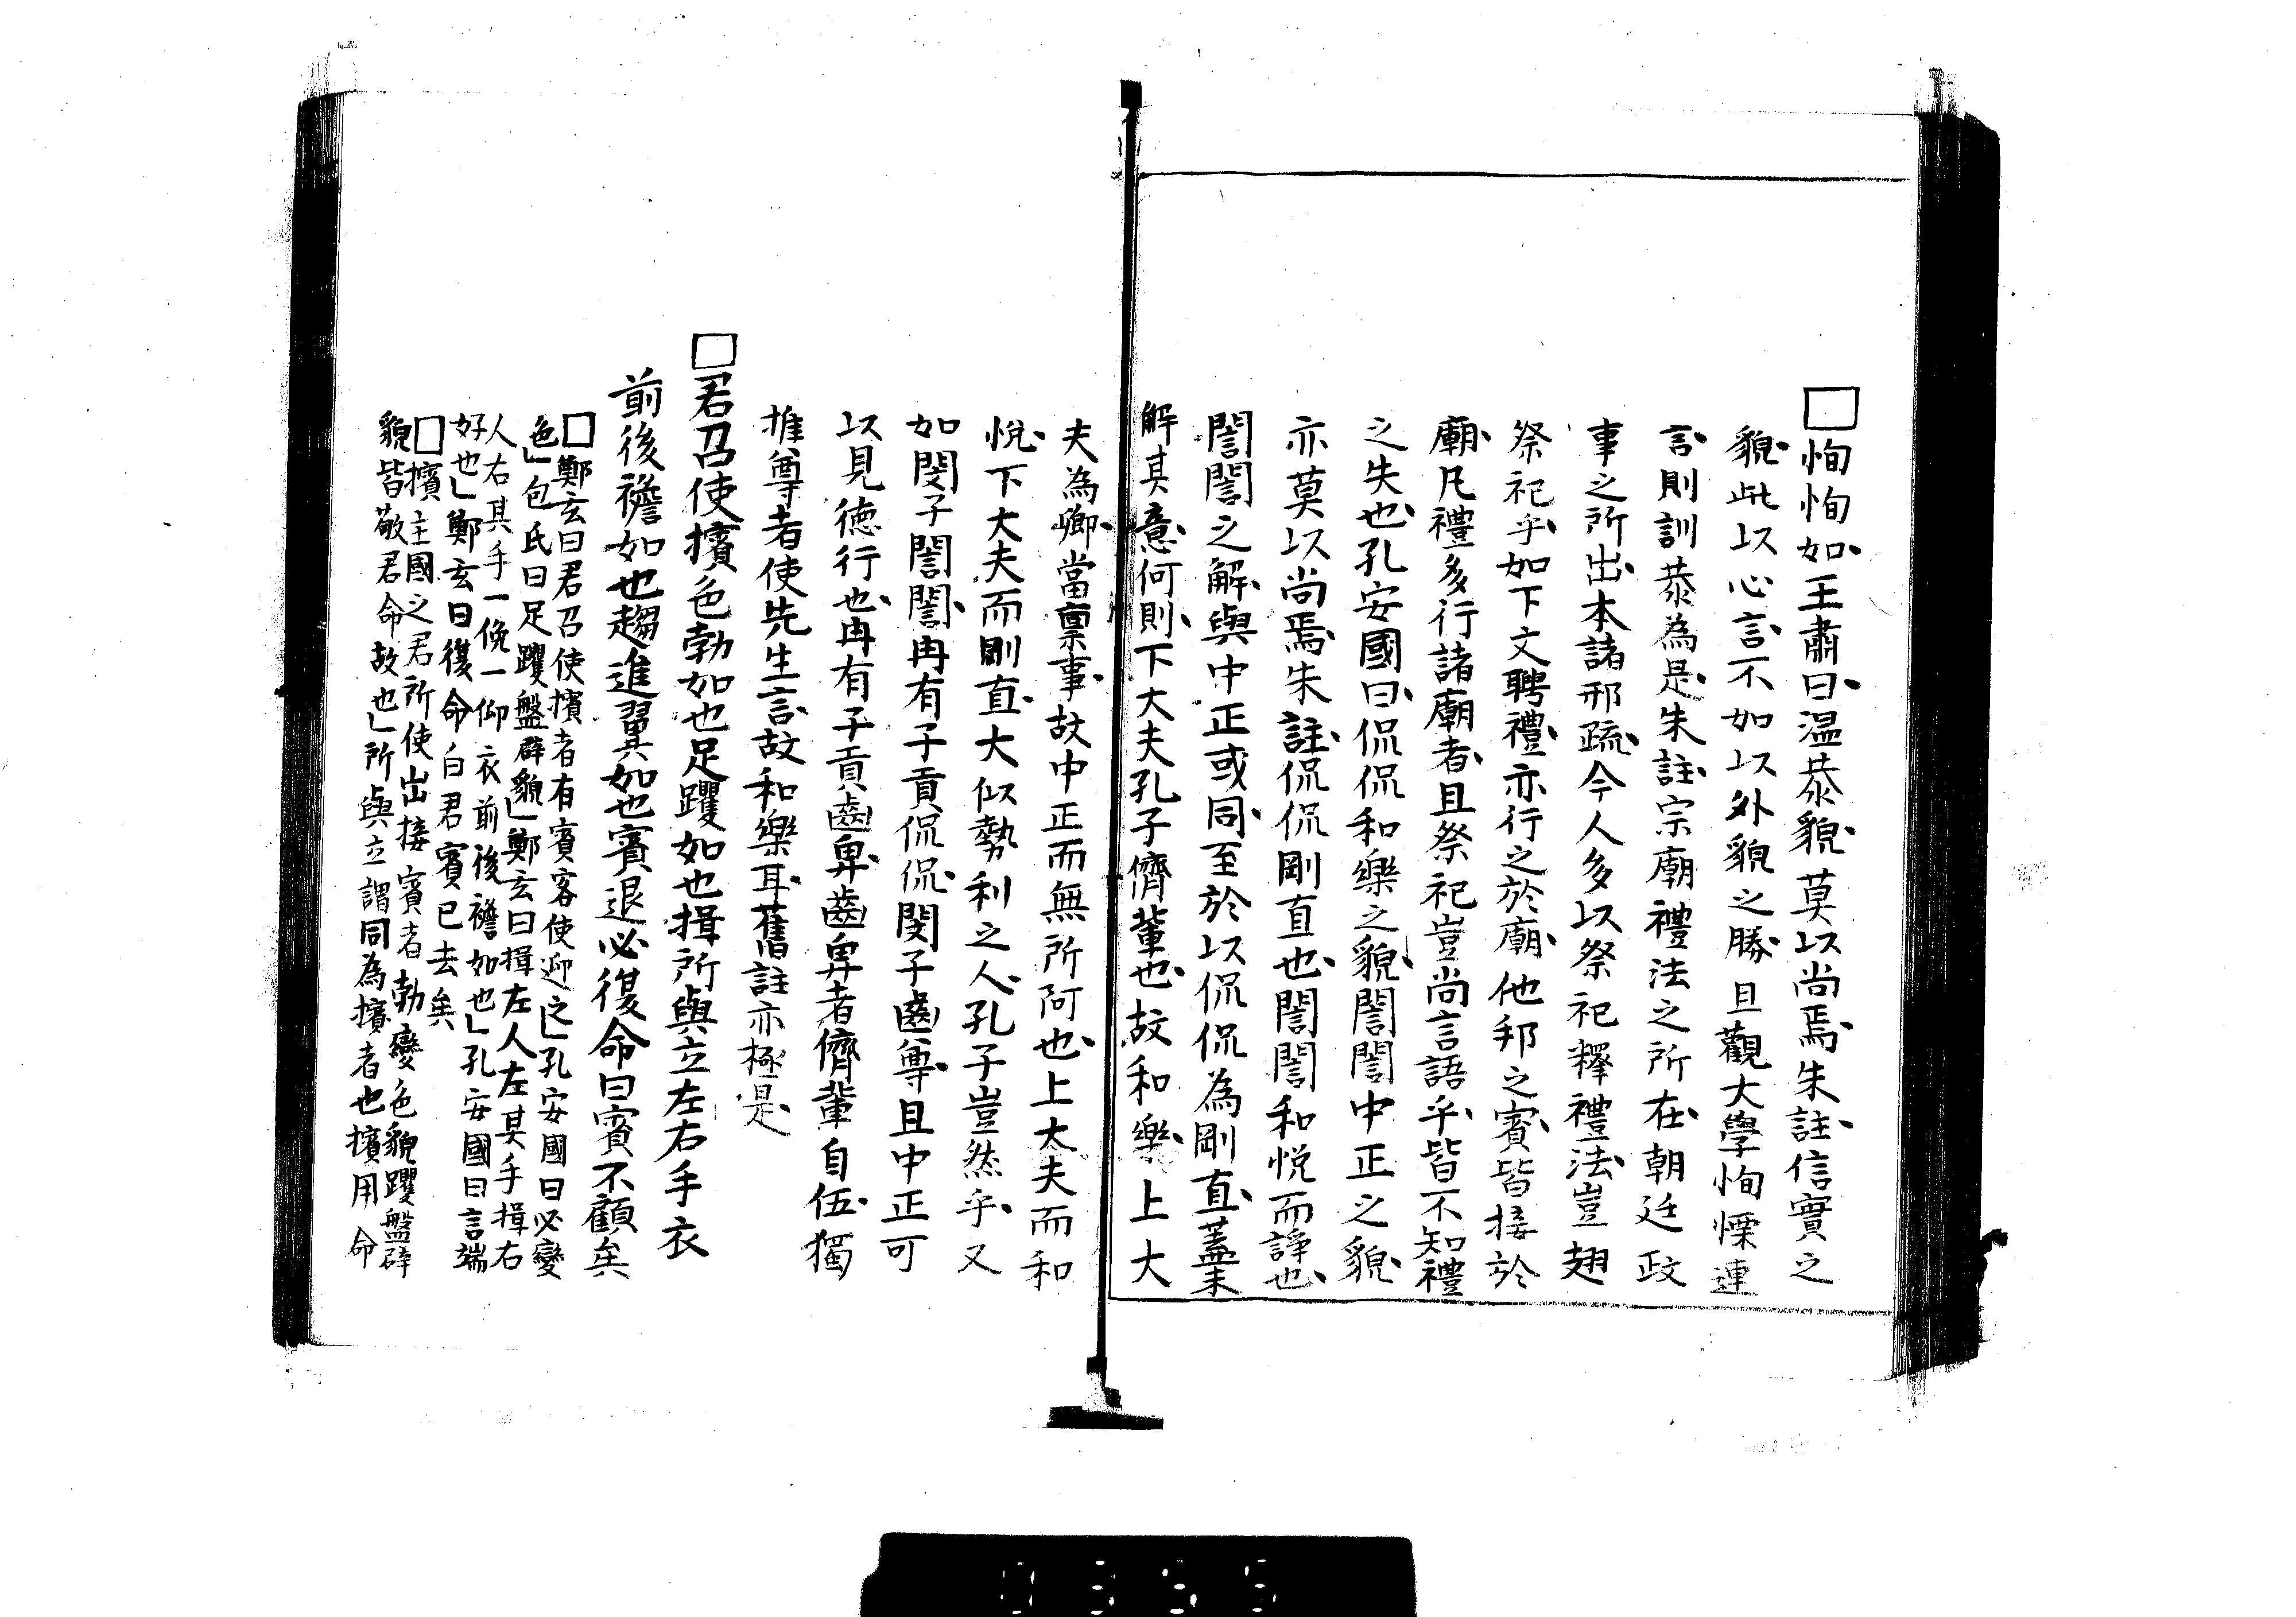 □恂恂如王肅曰温恭貌莫以尚焉朱註信實之
貌此以心言不如以外貌之勝且觀大學恂慄連
言則訓恭為是朱註宗廟禮法之所在朝廷政
事之所出本諸邢疏今人多以祭祀釋禮法豈翅
祭祀乎如下文聘禮亦行之於廟他邦之賓皆接於
廟凡禮多行諸廟者且祭祀豈尚言語乎皆不知禮
之失也孔安國曰侃侃和樂之貌誾誾中正之貌
亦莫以尚焉朱註侃侃剛直也誾誾和悦而諍也
誾誾之解與中正或同至於以侃侃為剛直蓋未
解其意何則下大夫孔子儕輩也故和樂上大
夫為卿當稟事故中正而無所阿也上大夫而和
悦下大夫而剛直大似勢利之人孔子豈然乎又
如閔子誾誾冉有子貢侃侃閔子齒尊且中正可
以見德行也冉有子貢齒卑齒卑者儕輩自伍獨
推尊者使先生言故和樂耳舊註亦極是
□君召使擯色勃如也足躩如也揖所與立左右手衣
前後襜如也趨進翼如也賓退必復命曰賓不顧矣
□鄭玄曰君召使擯者有賓客使迎之」孔安國曰必變
色」包氏曰足躩盤辟貌」鄭玄曰揖左人左其手揖右
人右其手一俛一仰衣前後襜如也」孔安國曰言端
好也」鄭玄曰復命白君賓已去矣
□擯主國之君所使出接賓者勃變色貌躩盤辟
貌皆敬君命故也」所與立謂同為擯者也擯用命